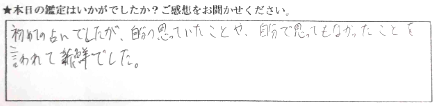 ★本日の鑑定はいかがでしたか？ご感想をお聞かせください。
初めての占いでしたが、自分の思っていたことや、自分で思ってもなかったことを
言われて新鮮でした。